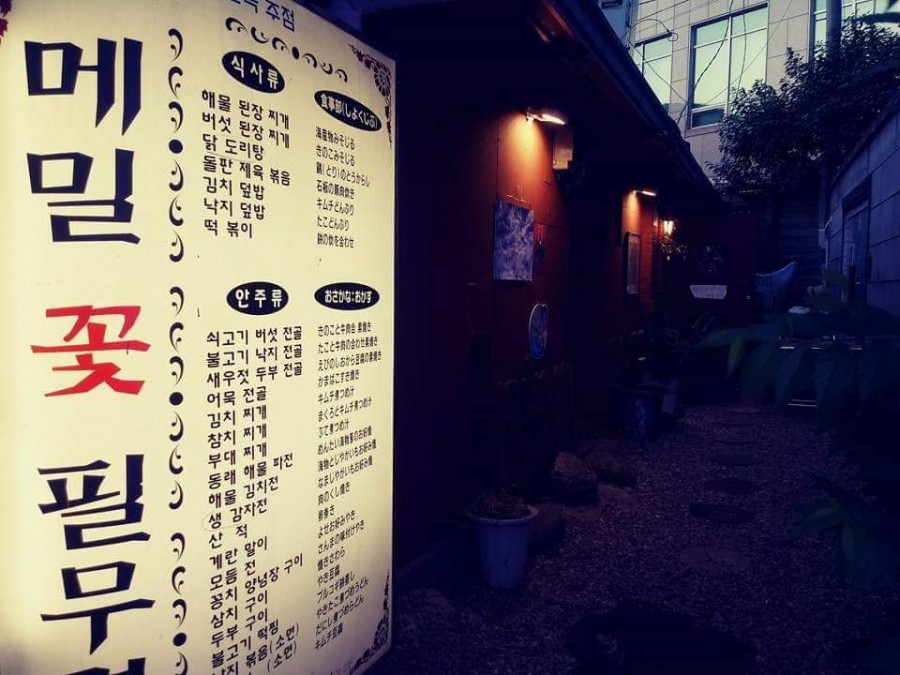 주점
메밀
꽃
필무
식사류
해물 된장 찌개
버섯 된장 찌개
닭 도리탕
돌판 제육 볶음
김치 덮밥
낙지 덮밥
떡 볶이
食事部(しょくじぶ)
海産物みそじる
きのこみそじる
鍋(とり)のとうからし
石板の豚肉炊き
キムチどんぶり
たこどんぶり
餅の炊を合わせ
안주류
쇠고기 버섯 전골
불고기 낙지 전골
새우젓 두부 전골
어묵 전골
김치 찌개
참치 찌개
부대 찌개
동래 해물 파전
해물 김치전
생 감자전
산 적
계란 말이
모듬 전
꽁치 양념장 구이
삼치 구이
두부 구이
불고기 떡찜
낙지 볶음(소면)
(소면)
おさかな:おかず
きのこと牛肉合
たこと牛肉の合わせ
えびのしおから豆腐の
かまぼこすき焼き
キムチ煮つめ汁
まぐろとキムチ煮つめ汁
煮つめ汁
めんたい海物のお好焼
海物とじやかいもお好み焼
なまじやがいもお好み焼
肉のくし焼き
卵巻き
よせお好みやき
さんまの味付けやき
焼きさわら
やき豆腐
プルコギ餅蒸し
やきたこ煮つめうどん
だにし煮つめらどん
キムチ豆腐